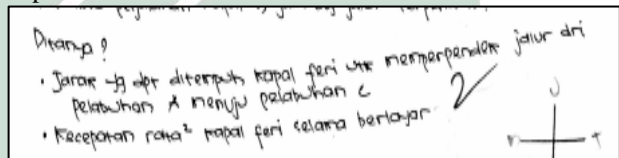 Ditanya ?
• Jarak yg dpt ditempuh kapal feri utk memperpendek jalur dri
pelabuhan A menuju pelabuhan C
• Kecepatan rata² kapal feri selama berlayar
2
U
T